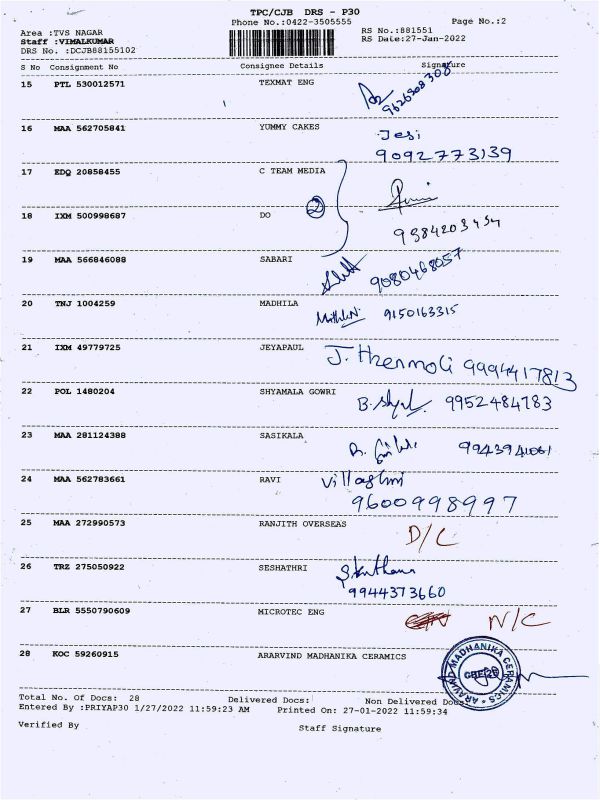 TPC/CJB DRS - P30
Phone No.:0422-3505555 Page No.:2
Area :TVS NAGAR RS No.:881551
Staff :VIMALKUMAR RS Date:27-Jan-2022
DRS No. :DCJB88155102
S No Consignment No Consignee Details Signature
15 PTL 530012571 TEXMAT ENG
16 MAA 562705841 YUMMY CAKES Jesi
9092773139
17 EDQ 20858455 C TEAM MEDIA
2
18 IXM 500998687 DO
19 MAA 566846088 SABARI 9080468057
20 TNJ 1004259 MADHILA 9150163315
21 IXM 49779725 JEYAPAUL J. thenmoli 9994417813
22 POL 1480204 SHYAMALA GOWRI 9952484783
23 MAA 281124388 SASIKALA
24 MAA 562783661 RAVI
9600998997
25 MAA 272990573 RANJITH OVERSEAS D/C
26 TRZ 275050922 SESHATHRI
9944373660
27 BLR 5550790609 MICROTEC ENG N/C
28 KOC 59260915 ARARVIND MADHANIKA CERAMICS ARAVIND MADHANIKA CERAMICS
Total No. Of Docs: 28 Delivered Docs: Non Delivered Docs:
Entered By :PRIYAP30 1/27/2022 11:59:23 AM Printed On: 27-01-2022 11:59:34
Verified By Staff Signature